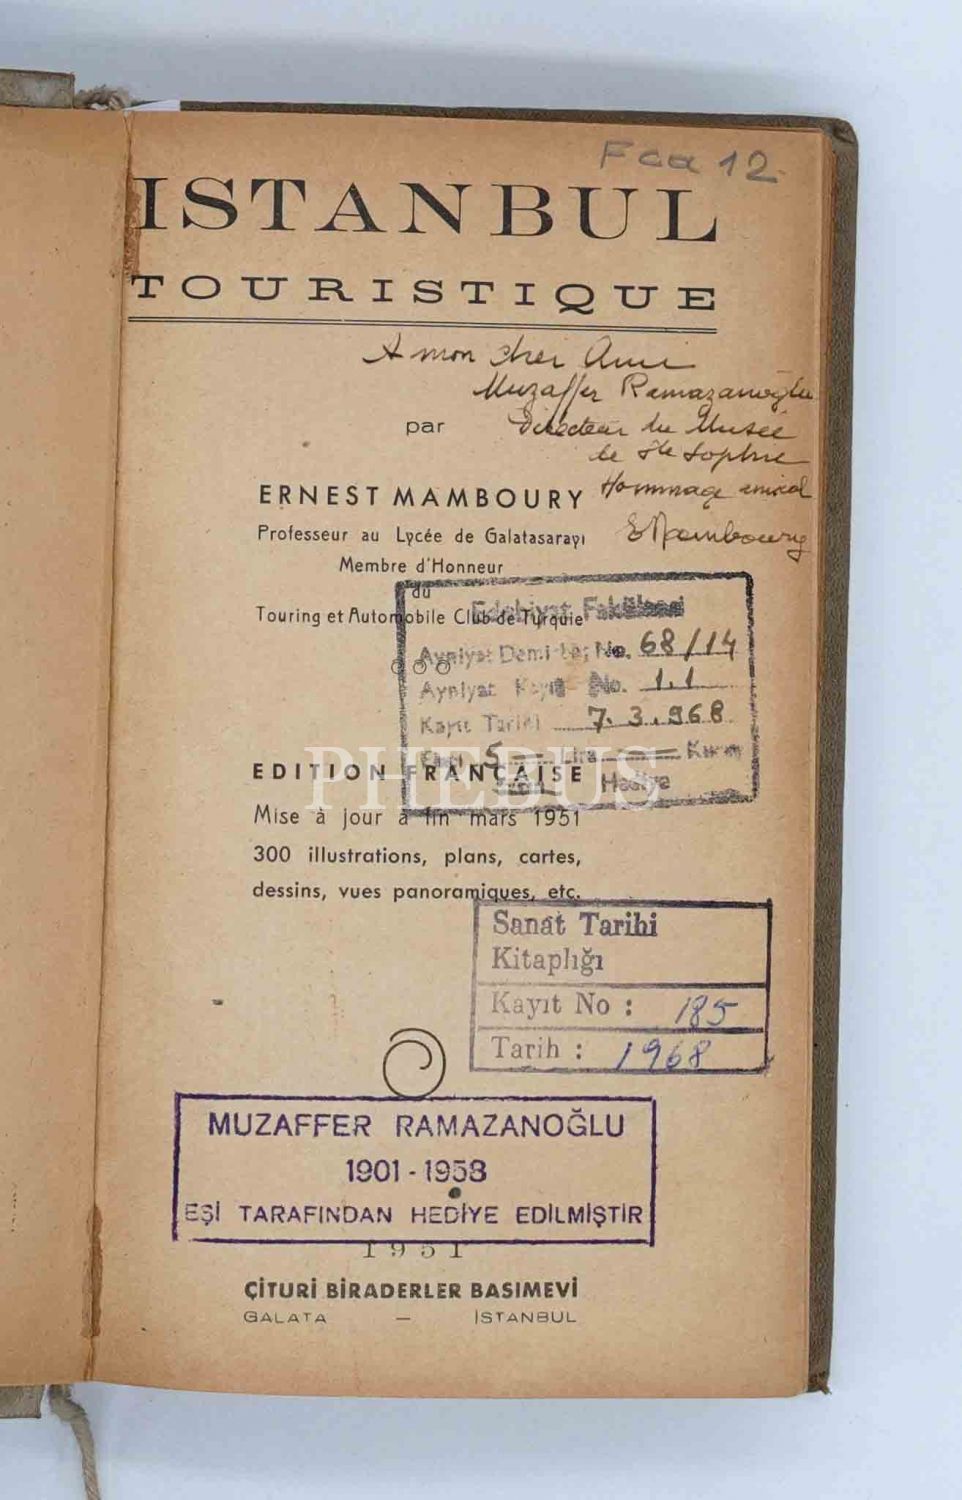 Fca 12.
ISTANBUL
TOURISTIQUE
A mon cher Ami
Muzaffer Ramazanoğlu
Directeur du Musée
de Ste Sophie
Hommage amical
EMamboury
par
ERNEST MAMBOURY
Professeur au Lycée de Galatasarayı
Membre d'Honneur
du
Touring et Automobile Club de Turquie
Edebiyat Fakültesi
Ayniyat Demirbaş No. 68/14
Ayniyat Kayıt No. 1.1
Kayıt Tarihi 7.3.968
5 Lira Kuruş
Hediye
EDITION FRANÇAISE
Mise à jour à fin mars 1951
300 illustrations, plans, cartes,
dessins, vues panoramiques, etc.
PHEBUS
Sanat Tarihi
Kitaplığı
Kayıt No : 185
Tarih : 1968
MUZAFFER RAMAZANOĞLU
1901 - 1958
EŞİ TARAFINDAN HEDİYE EDİLMİŞTİR
1951
ÇİTURİ BİRADERLER BASIMEVİ
GALATA — İSTANBUL